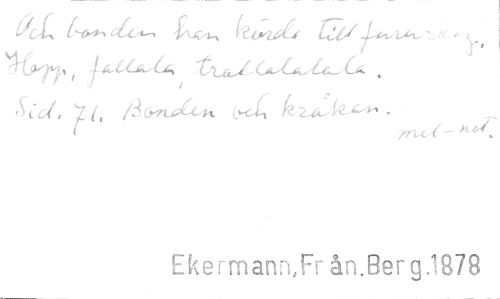 Och bonden han körde till furuskog.
Hopp, fallala, trallalalala.
Sid. 71. Bonden och kråkan.
mel-not.
Ekermann,Från.Berg.1878